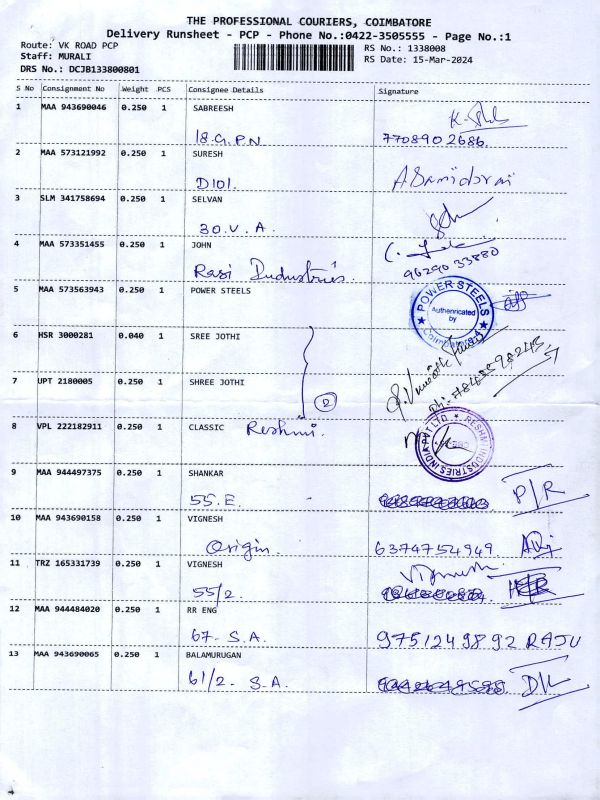 THE PROFESSIONAL COURIERS, COIMBATORE
Delivery Runsheet - PCP - Phone No.:0422-3505555 - Page No.:1
Route: VK ROAD PCP
RS No.: 1338008
Staff: MURALI
RS Date: 15-Mar-2024
DRS No.: DCJB133800801
S No Consignment No Weight PCS Consignee Details Signature
1 MAA 943690046 0.250 1 SABREESH
18.G.P.N 7708902686.
2 MAA 573121992 0.250 1 SURESH
D101.
3 SLM 341758694 0.250 1 SELVAN
30.V.A.
4 MAA 573351455 0.250 1 JOHN
Rasi Industries. 9629033880
5 MAA 573563943 0.250 1 POWER STEELS
POWER STEELS
Authenricated by
Coimbatore-4
6 HSR 3000281 0.040 1 SREE JOTHI
7 UPT 2180005 0.250 1 SHREE JOTHI
2
8 VPL 222182911 0.250 1 CLASSIC Reshmi.
RESHMI INDUSTRIES INDIA PVT LTD
9 MAA 944497375 0.250 1 SHANKAR
55.E. P/R
10 MAA 943690158 0.250 1 VIGNESH
Origin. 6374754949.
11 TRZ 165331739 0.250 1 VIGNESH Vignesh
55/2.
12 MAA 944484020 0.250 1 RR ENG
67-S.A. 9751249892 RAJU
13 MAA 943690065 0.250 1 BALAMURUGAN
61/2. S.A. D/L